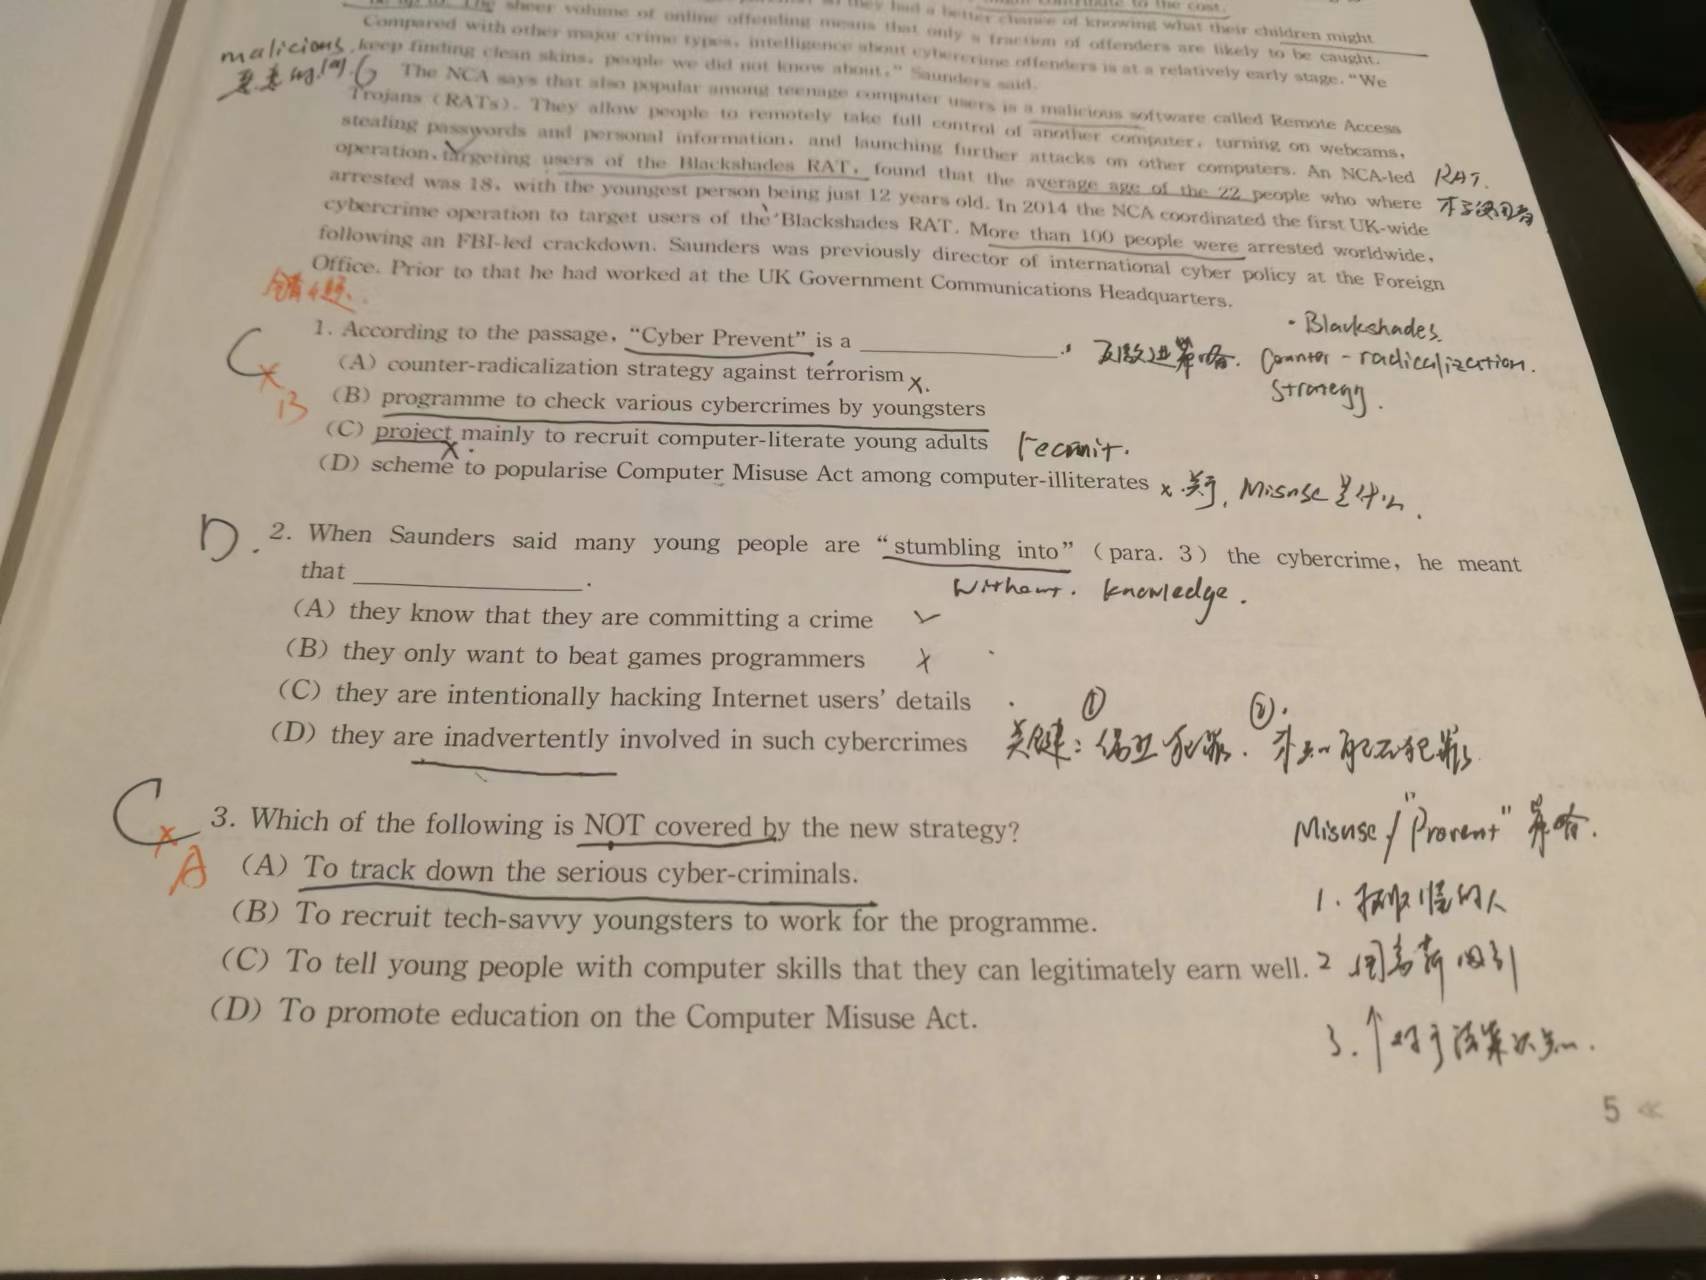 they had a better chance of knowing what their children might
The sheer volume of online offending means that only a fraction of offenders are likely to be caught.
Compared with other major crime types, intelligence about cybercrime offenders is at a relatively early stage. "We
keep finding clean skins, people we did not know about," Saunders said.
malicious.
The NCA says that also popular among teenage computer users is a malicious software called Remote Access
Trojans (RATs). They allow people to remotely take full control of another computer, turning on webcams,
stealing passwords and personal information, and launching further attacks on other computers. An NCA-led
RAT.
operation, targeting users of the Blackshades RAT, found that the average age of the 22 people who where
arrested was 18, with the youngest person being just 12 years old. In 2014 the NCA coordinated the first UK-wide
cybercrime operation to target users of the Blackshades RAT. More than 100 people were arrested worldwide,
following an FBI-led crackdown. Saunders was previously director of international cyber policy at the Foreign
Office. Prior to that he had worked at the UK Government Communications Headquarters.
C × B
1. According to the passage, "Cyber Prevent" is a ____.
(A) counter-radicalization strategy against terrorism ×.
(B) programme to check various cybercrimes by youngsters
(C) project mainly to recruit computer-literate young adults recruit.
(D) scheme to popularise Computer Misuse Act among computer-illiterates ×.关于, Misuse是什么.
· Blackshades.
反激进策略. Counter-radicalization.
strategy.
D.
2. When Saunders said many young people are "stumbling into" (para. 3) the cybercrime, he meant
that ____.
without. knowledge.
(A) they know that they are committing a crime ✓
(B) they only want to beat games programmers ×
(C) they are intentionally hacking Internet users' details
(D) they are inadvertently involved in such cybercrimes
关键: ① 犯罪. ②. 犯罪
C × A
3. Which of the following is NOT covered by the new strategy?
(A) To track down the serious cyber-criminals.
(B) To recruit tech-savvy youngsters to work for the programme.
(C) To tell young people with computer skills that they can legitimately earn well.
(D) To promote education on the Computer Misuse Act.
Misuse / "Prevent" 策略.
1. 的人
2 用高薪吸引
3. ↑ 对于
5 ≪